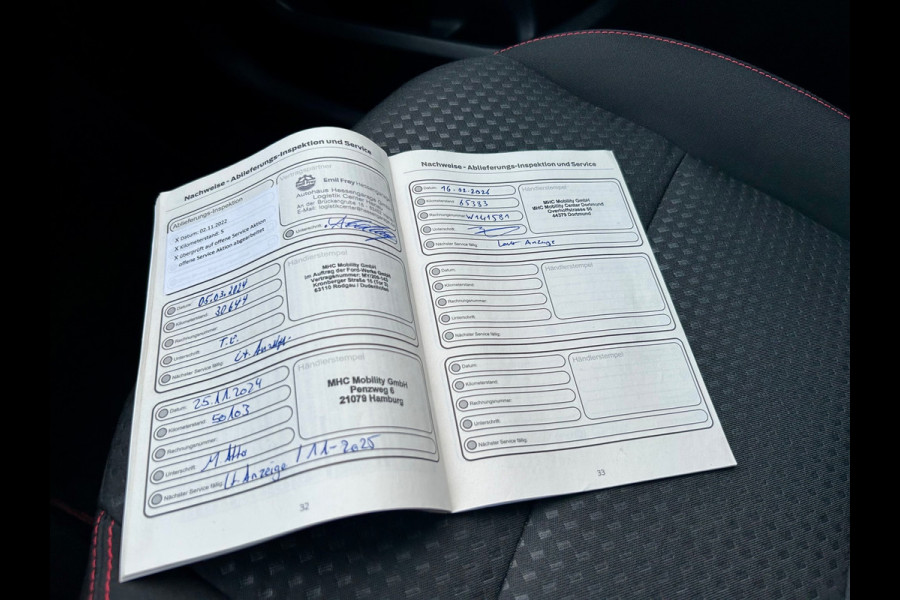 Nachweise - Ablieferungs-Inspektion und Service
Ablieferungs-Inspektion
X Datum: 02.11.2022
X Kilometerstand: 5
X überprüft auf offene Service Aktion
offene Service Aktion abgearbeitet
Emil Frey
Autohaus Hessengarage
Logistik Center
Unterschrift:
Datum: 05.03.2024
Kilometerstand: 30644
Rechnungsnummer:
Unterschrift:
Nächster Service fällig: Lt. Anzeige
MHC Mobility GmbH
im Auftrag der Ford-Werke GmbH
Kronberger Straße
63110 Rodgau / Dudenhofen
Datum: 25.11.2024
Kilometerstand: 50103
Rechnungsnummer:
Unterschrift:
Nächster Service fällig: Lt. Anzeige / 11-2025
Händlerstempel
MHC Mobility GmbH
Penzweg 6
21079 Hamburg
32
Nachweise - Ablieferungs-Inspektion und Service
Datum: 16.02.2026
Kilometerstand: 65383
Rechnungsnummer: W141581
Unterschrift:
Nächster Service fällig: Laut Anzeige
Händlerstempel
MHC Mobility GmbH
MHC Mobility Center Dortmund
44379 Dortmund
Datum:
Kilometerstand:
Rechnungsnummer:
Unterschrift:
Nächster Service fällig:
Händlerstempel
Datum:
Kilometerstand:
Rechnungsnummer:
Unterschrift:
Nächster Service fällig:
Händlerstempel
33